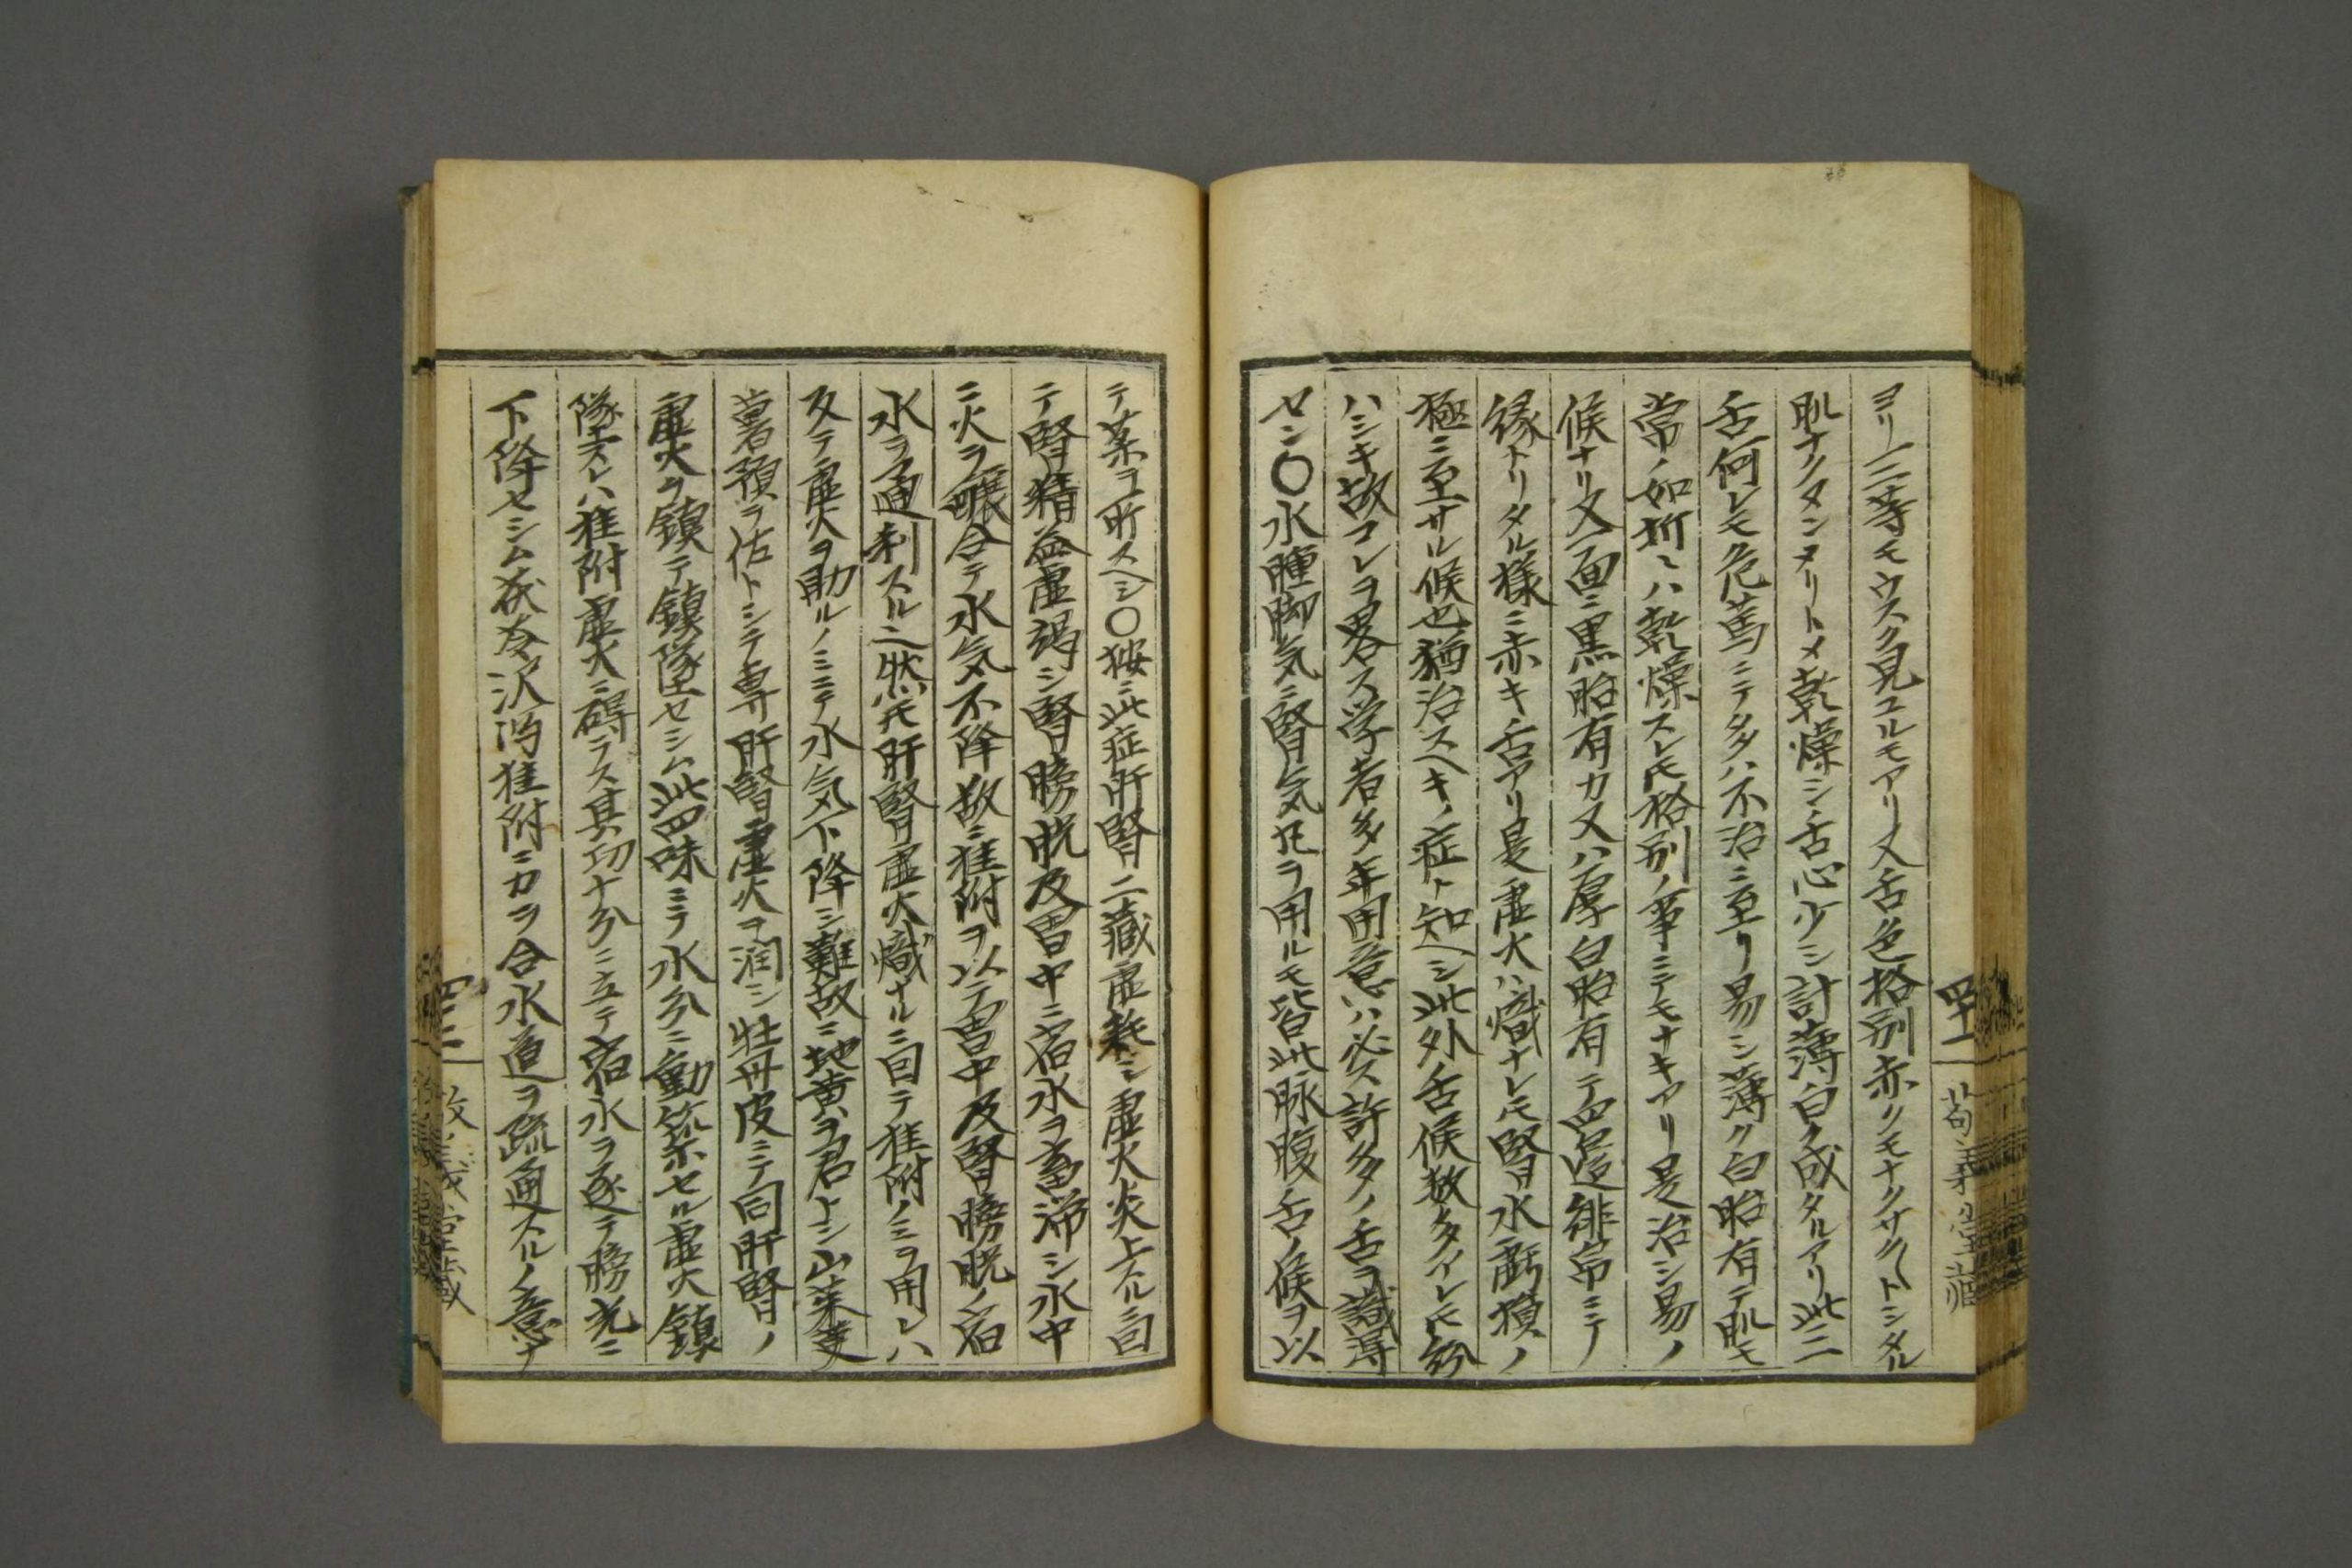 ヨリ一二等モウスク見ユルモアリ又舌色格別赤クモナクサク〱トシタル
肌ナクヌンメリトメ乾燥シ舌心少シ計薄白ク成タルアリ此二
舌何レモ危篤ニテ多ハ不治ニ至リ易シ薄ク白胎有テ肌モ
常ノ如折〻ハ乾燥スレ𪜈格別ノ事ニテモナキアリ是治シ易ノ
候ナリ又一面ニ黒胎有カ又ハ厚白胎有テ四邉緋帛ニテ
縁トリタル様ニ赤キ舌アリ是虚火ハ熾ナレ𪜈腎水虧損ノ
極ニ至サル候也猶治スヘキノ症ト知ヘシ此外舌候数多イレ𪜈紛
ハシキ故コレヲ畧ス学者多年用意ハ必ス許多ノ舌ヲ識得
セン〇水腫脚気ニ腎気丸ヲ用ルモ皆此脉腹舌ノ候ヲ以
四十一
テ薬ヲ所スヘシ〇按ニ此症肝腎二藏虚耗シ虚火炎上スルニ曰
テ腎精益虚竭シ腎膀胱及胃中ニ宿水ヲ畜滞シ水中
ニ火ヲ醸合テ水気不降故ニ桂附ヲ以テ胃中及腎膀胱ノ宿
水ヲ通利スル也然𪜈肝腎虚火熾ナルニ曰テ桂附ノミヲ用レハ
反テ虚火ヲ助ルノミニテ水気下降シ難故ニ地黄ヲ君トシ山茱萸
薯蕷ヲ佐トシテ専肝腎虚火ヲ潤シ牡丹皮ニテ同肝腎ノ
虚火ヲ鎮テ鎮墜セシム此四味ニテ水分ニ動築セル虚火鎮
墜スレハ桂附虚火ニ碍ラス其功十分ニ立テ宿水ヲ逐テ膀光ニ
下降セシム茯苓沢瀉桂附ニカヲ合水道ヲ疏通スルノ意ナ
四十二